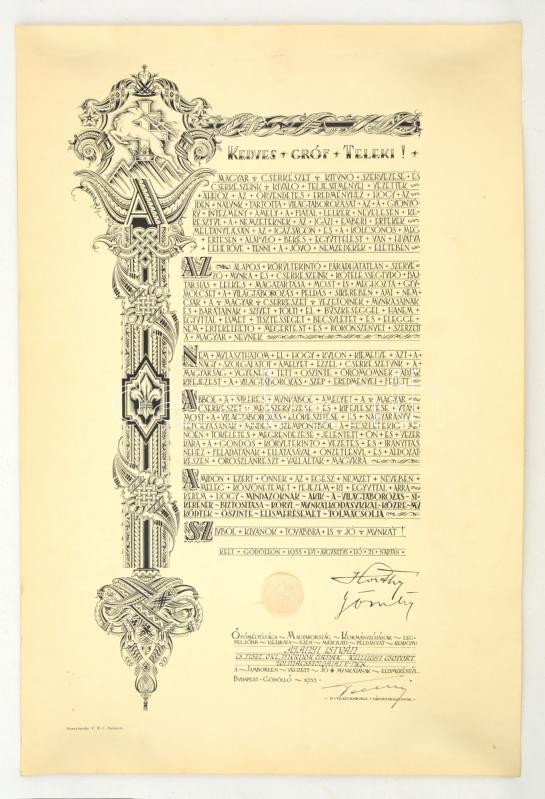 KEDVES + GRÓF + TELEKI !
A MAGYAR + CSERKÉSZET + KITŰNŐ + SZERVEZÉSE + ÉS
CSERKÉSZEINK + KIVÁLÓ + TELJESÍTMÉNYEI + VEZETTEK
AHHOZ + AZ + ÖRVENDETES + EREDMÉNYHEZ + HOGY + AZ
IDÉN + NÁLUNK + TARTOTTA + VILÁGTÁBOROZÁSÁT + AZ + A + GYÖNYÖ-
RŰ + INTÉZMÉNY + AMELY + A + FIATAL + LELKEK + NEVELÉSÉN + KE-
RESZTÜL + A + NEMZETEKNEK + AZ + IGAZI + EMBERI + ÉRTÉKEK
MÉLTÁNYLÁSÁN + AZ + IGAZSÁGON + ÉS + A + KÖLCSÖNÖS + MEG-
ÉRTÉSEN + ALAPULÓ + BÉKÉS + EGYÜTTÉLÉST + VAN + HIVATVA
LEHETŐVÉ + TENNI + A + JÖVŐ + NEMZEDÉKEK + ÉLETÉBEN
AZ ALAPOS + KÖRÜLTEKINTŐ + FÁRADHATATLAN + SZERVE-
ZŐ + MUNKA + ÉS + CSERKÉSZEINK + KÖTELESSÉGTUDÓ + BAJ-
TÁRSIAS + LELKES + MAGATARTÁSA + MOST + IS + MEGHOZTA + GYÜ-
MÖLCSÉT + A + VILÁGTÁBOROZÁS + PÉLDÁS + SIKERÉBEN + AMI + NEM-
CSAK + A + MAGYAR + CSERKÉSZET + VEZETŐINEK + MUNKÁSAINAK
ÉS + BARÁTAINAK + SZIVÉT + TÖLTI + EL + BÜSZKESÉGGEL + HANEM
EGYÚTTAL + ELISMERÉST + TISZTESSÉGET + BECSÜLETET + ÉS + ELÉGGÉ
NEM + ÉRTÉKELHETŐ + MEGÉRTÉST + ÉS + ROKONSZENVET + SZERZETT
A + MAGYAR + NÉVNEK
NEM + MULASZTHATOM + EL + HOGY + KÜLÖN + KIEMELVE + AZT + A
NAGY + SZOLGÁLATOT + AMELYET + EZZEL + CSERKÉSZETÜNK + A
MAGYARSÁG + ÜGYÉNEK + TETT + ŐSZINTE + ÖRÖMÖMNEK + ADJAK
KIFEJEZÉST + A + VILÁGTÁBOROZÁS + SZÉP + EREDMÉNYEI + FELETT
ABBÓL + A + SIKERES + MUNKÁBÓL + AMELYET + A + MAGYAR
CSERKÉSZET + MEGSZERVEZÉSE + ÉS + KIFEJLESZTÉSE + UTÁN
MOST + A + VILÁGTÁBOROZÁS + ELŐKÉSZÍTÉSE + ÉS + NAGYARÁNYÚ
MINDEN + SZEMPONTBÓL + A
TÖKÉLETES + MEGRENDEZÉSE + JELENTETT + ÖN + ÉS + VEZÉR
KARA + A + GONDOS + KÖRÜLTEKINTŐ + VEZETÉS + ÉS + IRÁNYÍTÁS
NEHÉZ + FELADATÁNAK + ELLÁTÁSÁVAL + ÖNZETLENÜL + ÉS + ÁLDOZAT-
KÉSZEN + OROSZLÁNRÉSZT + VÁLLALTAK + MAGUKRA
AMIDŐN + EZÉRT + ÖNNEK + AZ + EGÉSZ + NEMZET + NEVÉBEN
MELEG + KÖSZÖNETEMET + FEJEZEM + KI + EGYÚTTAL + ARRA
KÉREM + HOGY + MINDAZOKNAK + AKIK + A + VILÁGTÁBOROZÁS + SI-
KERÉNEK + BIZTOSÍTÁSA + KÖRÜL + MUNKÁLKODÁSUKKAL + KÖZRE-MŰ
KÖDTEK + ŐSZINTE + ELISMERÉSEMET + TOLMÁCSOLJA
SZIVBŐL + KÍVÁNOK + TOVÁBBRA + IS + JÓ + MUNKÁT !
KELT + GÖDÖLLŐN + 1933 + ÉVI + AUGUSZTUS + HÓ + 21 + NAPJÁN
Horthy
Gömbös
ŐFŐMÉLTÓSÁGA ~ MAGYARORSZÁG ~ KORMÁNYZÓJÁNAK ~ LEG-
FELSŐBB ~ KÉZIRATA ~ EZEN ~ MÁSOLATI ~ PÉLDÁNYÁT ~ KIADOM
ISTVÁN
A ~ JAMBOREEN ~ VÉGZETT ~ JÓ ~ MUNKÁJÁNAK ~ ELISMERÉSÉÜL
BUDAPEST-GÖDÖLLŐ ~ 1933